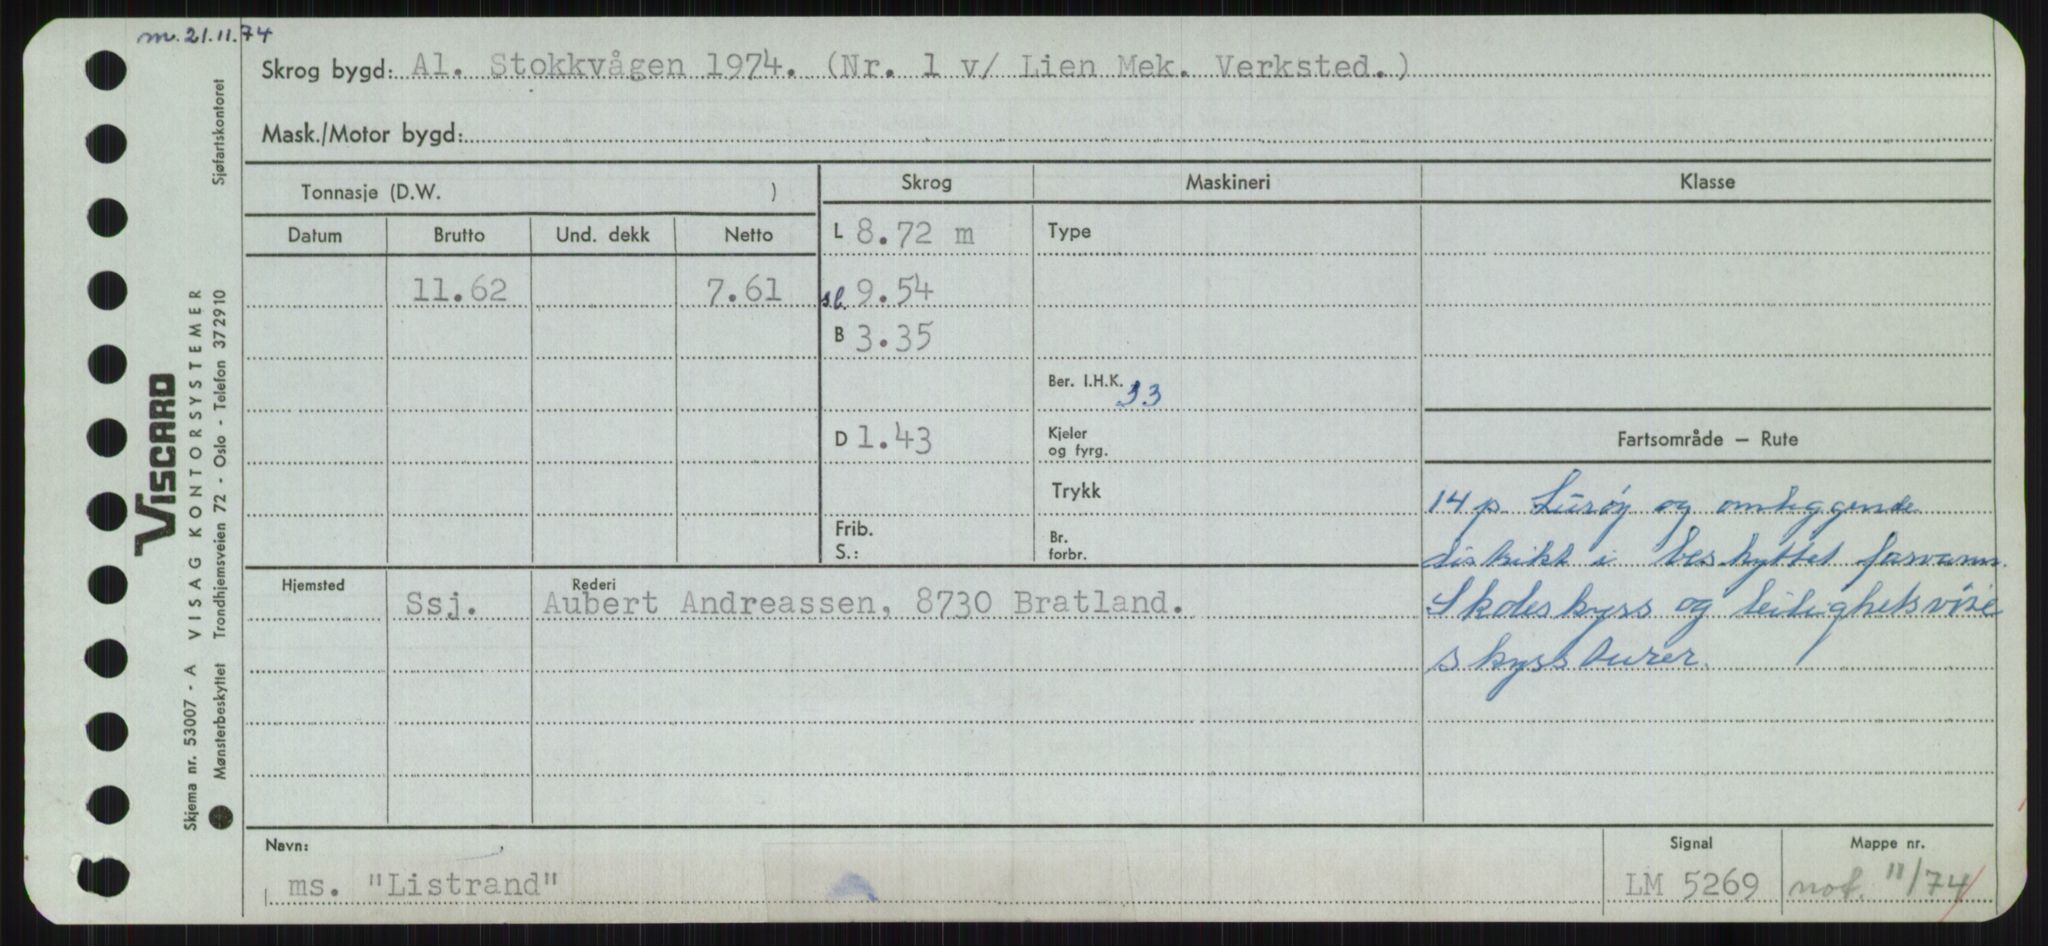 m. 21.11.74
Skrog bygd: Al. Stokkvågen 1974. (Nr. 1 v/ Lien Mek. Verksted.)
Mask./Motor bygd:
Tonnasje (D.W. )
Skrog
Maskineri
Klasse
Datum
Brutto
Und. dekk
Netto
L 8.72 m
Type
11.62
7.61
sl. 9.54
B 3.35
Ber. I.H.K. 33
D 1.43
Kjeler
og fyrg.
Fartsområde – Rute
Trykk
14 p. Lurøy og omliggende
distrikt i beskyttet farvann.
Skoleskyss og leilighetsvise
skyssturer.
Frib.
S.:
Br.
forbr.
Hjemsted
Rederi
Ssj.
Aubert Andreassen, 8730 Bratland.
Navn:
ms. "Listrand"
Signal
LM 5269
Mappe nr.
not. 11/74
VISCARD
Skjema nr. 53007 - A VISAG KONTORSYSTEMER
Mønsterbeskyttet Trondhjemsveien 72 - Oslo - Telefon 372910 Sjøfartskontoret